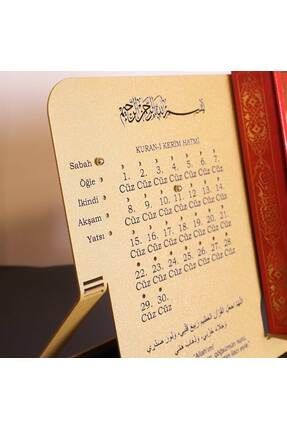 بسم الله الرحمن الرحيم
KURAN-I KERİM HATMİ
Sabah
Öğle
İkindi
Akşam
Yatsı
1. 2. 3. 4. 5. 6. 7.
Cüz Cüz Cüz Cüz Cüz Cüz Cüz
8. 9. 10. 11. 12. 13. 14.
Cüz Cüz Cüz Cüz Cüz Cüz Cüz
15. 16. 17. 18. 19. 20. 21.
Cüz Cüz Cüz Cüz Cüz Cüz Cüz
22. 23. 24. 25. 26. 27. 28.
Cüz Cüz Cüz Cüz Cüz Cüz Cüz
29. 30.
Cüz Cüz
اللهم اجعل القرآن العظيم ربيع قلبي، ونور صدري
وجلاء حزني، وذهاب همّي
"Allah'ım!